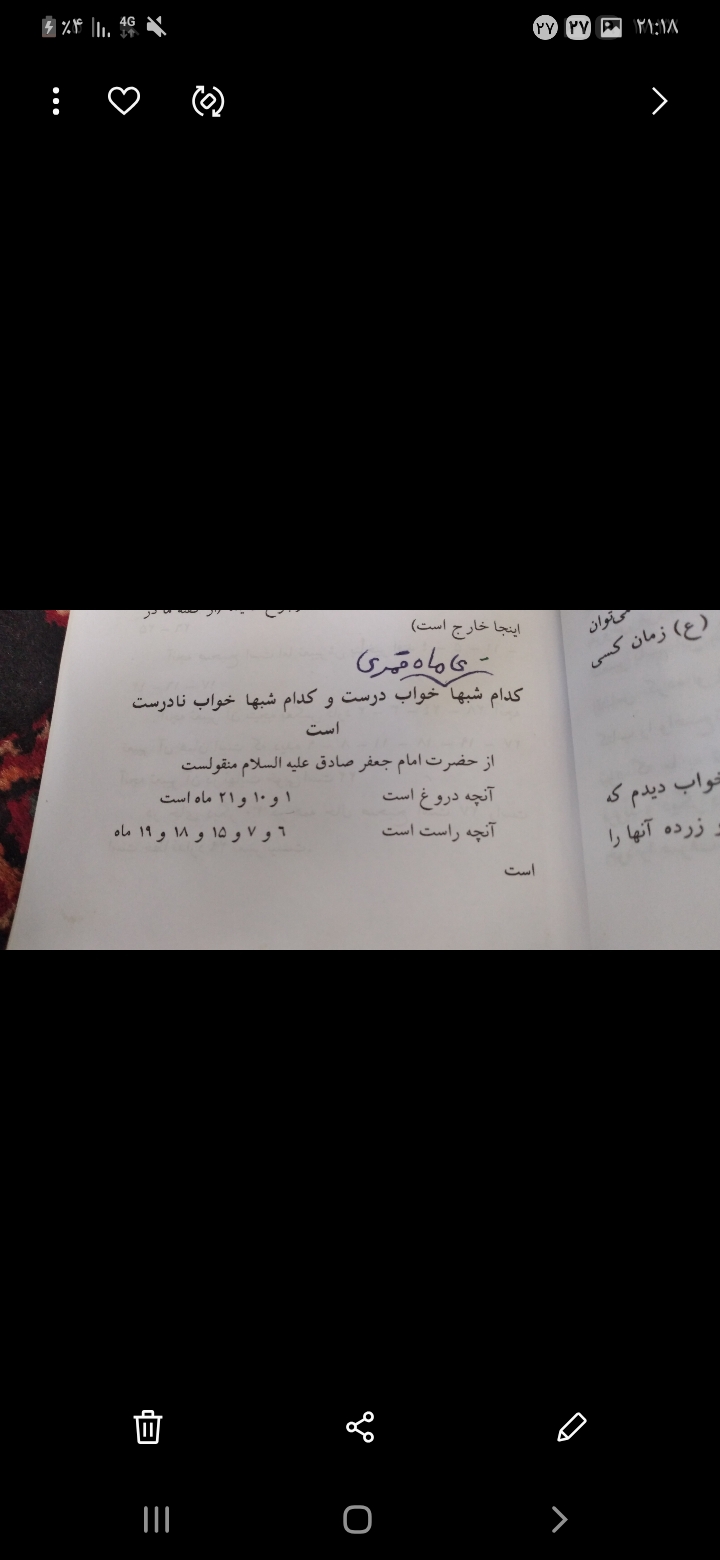 ٪۴
4G
۲۷
۲۷
۲۱:۱۸
اینجا خارج است)
ی ماه قمری
کدام شبها خواب درست و کدام شبها خواب نادرست
است
از حضرت امام جعفر صادق علیه السلام منقولست
آنچه دروغ است ۱ و ۱۰ و ۲۱ ماه است
آنچه راست است ۶ و ۷ و ۱۵ و ۱۸ و ۱۹ ماه
است
می‌توان
(ع) زمان کسی
خواب دیدم که
زرده آنها را